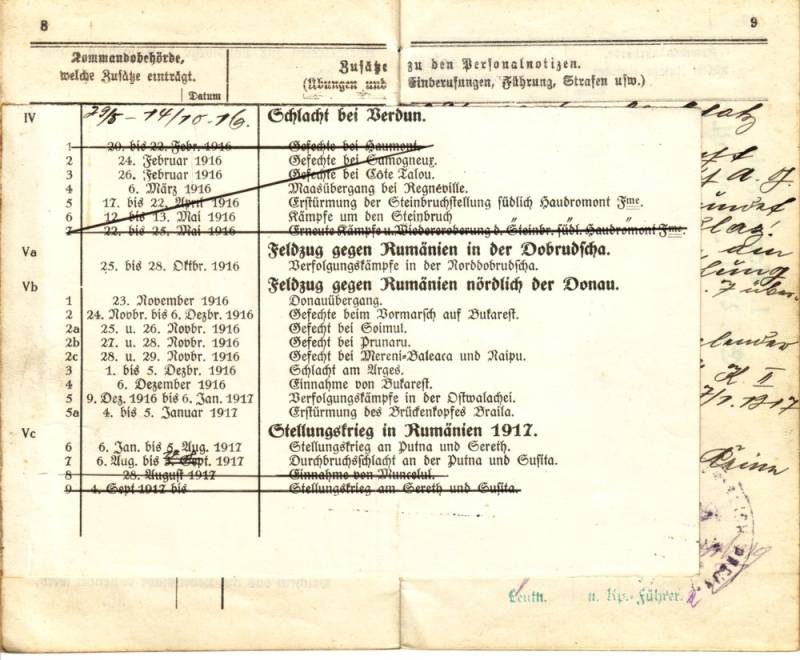 8
9
Kommandobehörde,
welche Zusätze einträgt.
Datum
Zusätze zu den Personalnotizen.
(Übungen und Einberufungen, Führung, Strafen usw.)
IV 29/8 - 14/10.16. Schlacht bei Verdun.
1 20. bis 22. Febr. 1916 Gefechte bei Haumont.
2 24. Februar 1916 Gefechte bei Samogneux.
3 26. Februar 1916 Gefechte bei Côte Talou.
4 6. März 1916 Maasübergang bei Regnéville.
5 17. bis 22. April 1916 Erstürmung der Steinbruchstellung südlich Haudromont Fme.
6 12. bis 13. Mai 1916 Kämpfe um den Steinbruch
7 22. bis 25. Mai 1916 Erneute Kämpfe u. Wiedereroberung d. Steinbr. südl. Haudromont Fme.
Va Feldzug gegen Rumänien in der Dobrudscha.
25. bis 28. Oktbr. 1916 Verfolgungskämpfe in der Norddobrudscha.
Vb Feldzug gegen Rumänien nördlich der Donau.
1 23. November 1916 Donauübergang.
2 24. Novbr. bis 6. Dezbr. 1916 Gefechte beim Vormarsch auf Bukarest.
2a 25. u. 26. Novbr. 1916 Gefecht bei Soimul.
2b 27. u. 28. Novbr. 1916 Gefecht bei Prunaru.
2c 28. u. 29. Novbr. 1916 Gefecht bei Mereni-Baleaca und Naipu.
3 1. bis 5. Dezbr. 1916 Schlacht am Arges.
4 6. Dezember 1916 Einnahme von Bukarest.
5 9. Dez. 1916 bis 6. Jan. 1917 Verfolgungskämpfe in der Ostwalachei.
5a 4. bis 5. Januar 1917 Erstürmung des Brückenkopfes Braila.
Vc Stellungskrieg in Rumänien 1917.
6 6. Jan. bis 5. Aug. 1917 Stellungskrieg an Putna und Sereth.
7 6. Aug. bis 3. Sept. 1917 Durchbruchsschlacht an der Putna und Susita.
8 28. August 1917 Einnahme von Muncelul.
9 4. Sept 1917 bis Stellungskrieg am Sereth und Susita.
K II
7/1.1917
Leutn. u. Kp.-Führer.